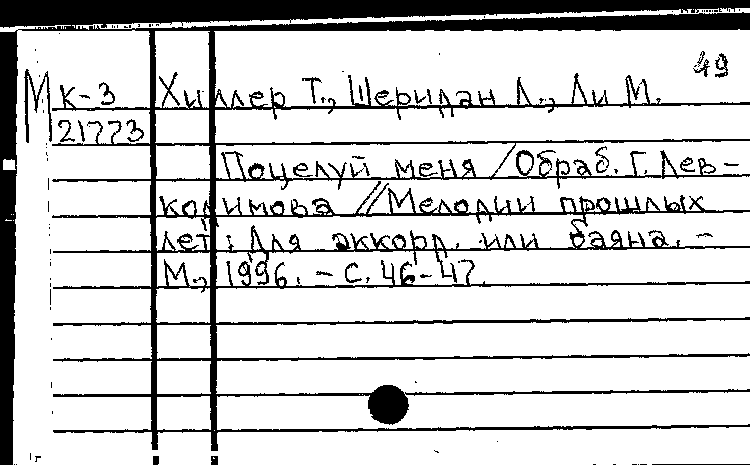 49
М К-3 Хиллер Т., Шеридан Л., Ли М.
21773
Поцелуй меня / Обраб. Г. Лев-
кодимова // Мелодии прошлых
лет: Для аккорд. или баяна. -
М., 1996. - С. 46-47.